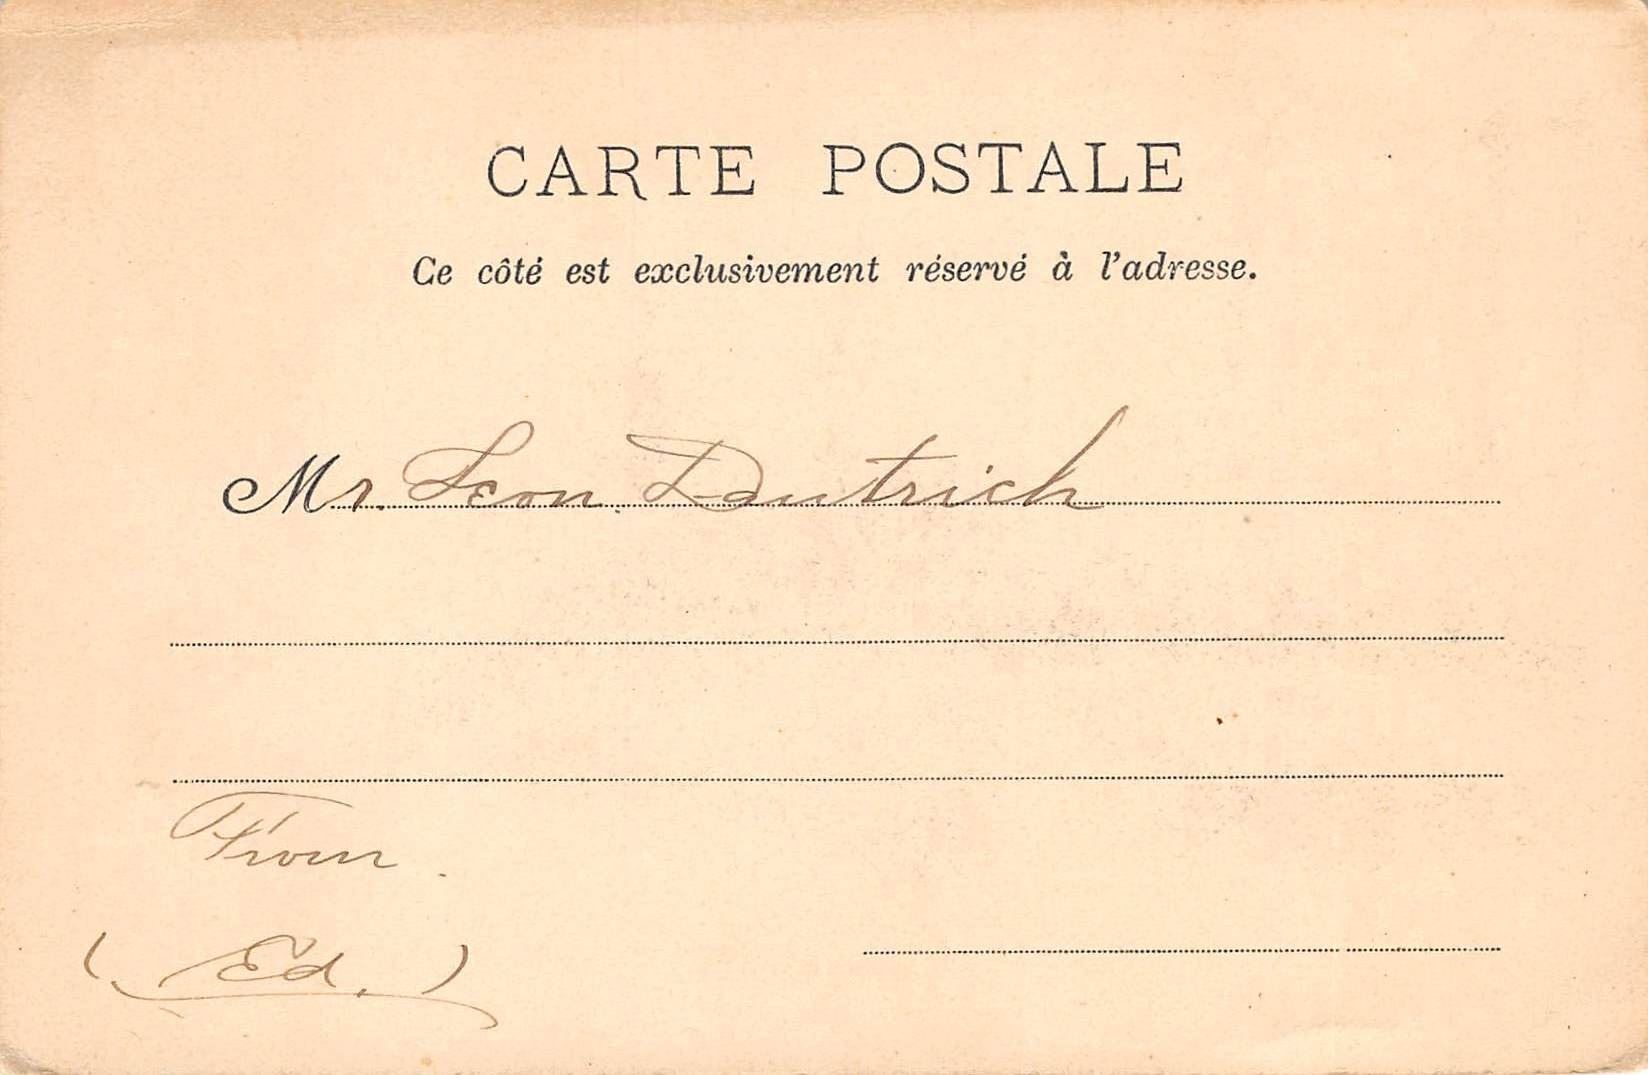 CARTE POSTALE
Ce côté est exclusivement réservé à l'adresse.
Mr. Leon. Dautrich
From.
(Ed.)